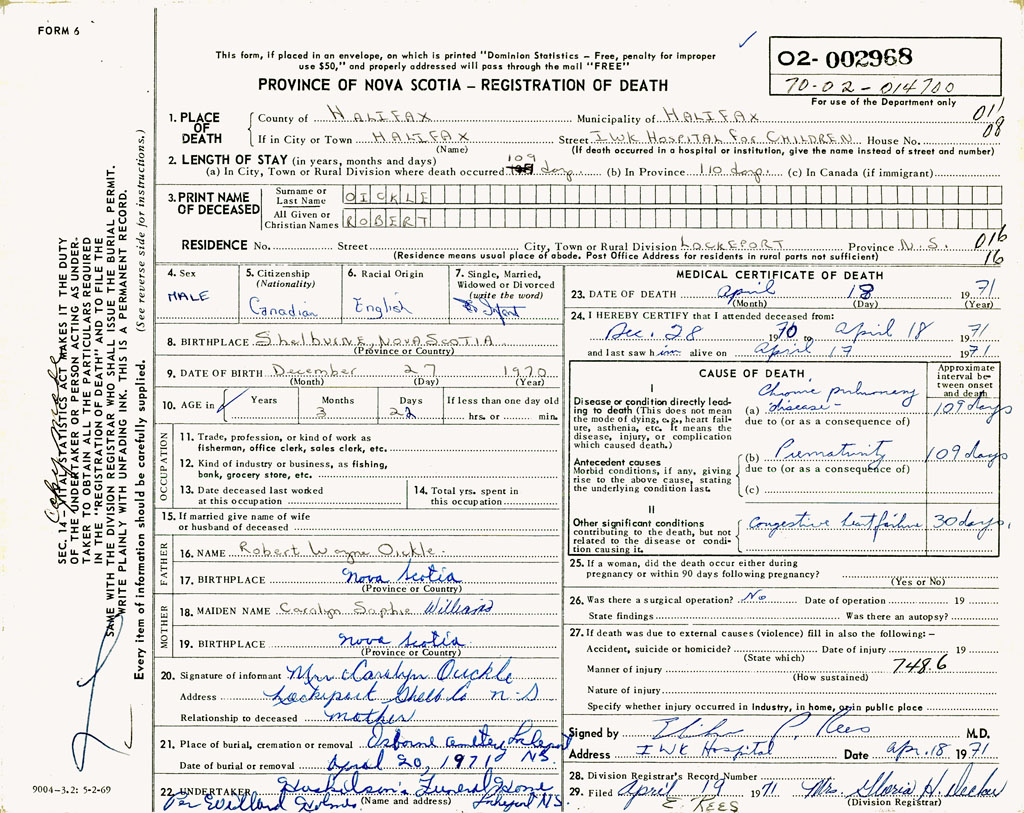 FORM 6
This form, if placed in an envelope, on which is printed "Dominion Statistics – Free, penalty for improper
use $50," and properly addressed will pass through the mail "FREE"
PROVINCE OF NOVA SCOTIA – REGISTRATION OF DEATH
02-002968
70-02-014700
For use of the Department only
1. PLACE OF DEATH
County of HALIFAX Municipality of HALIFAX 011
If in City or Town HALIFAX Street IWK HOSPITAL FOR CHILDREN House No. 08
(Name) (If death occurred in a hospital or institution, give the name instead of street and number)
2. LENGTH OF STAY (in years, months and days)
(a) In City, Town or Rural Division where death occurred 109 days (b) In Province 110 days (c) In Canada (if immigrant)
3. PRINT NAME OF DECEASED
Surname or Last Name OICKLE
All Given or Christian Names ROBERT
RESIDENCE No. Street City, Town or Rural Division LOCKEPORT Province N.S. 016
(Residence means usual place of abode. Post Office Address for residents in rural parts not sufficient) 16
4. Sex
MALE
5. Citizenship
(Nationality)
Canadian
6. Racial Origin
English
7. Single, Married,
Widowed or Divorced
(write the word)
Infant
8. BIRTHPLACE Shelburne, NOVA SCOTIA
(Province or Country)
9. DATE OF BIRTH December 27 1970
(Month) (Day) (Year)
10. AGE in Years Months 3 Days 22 If less than one day old
hrs. or min.
OCCUPATION
11. Trade, profession, or kind of work as
fisherman, office clerk, sales clerk, etc.
12. Kind of industry or business, as fishing,
bank, grocery store, etc.
13. Date deceased last worked
at this occupation
14. Total yrs. spent in
this occupation
15. If married give name of wife
or husband of deceased
FATHER
16. NAME Robert Wayne Oickle
17. BIRTHPLACE Nova Scotia
(Province or Country)
MOTHER
18. MAIDEN NAME Carolyn Sophie Williams
19. BIRTHPLACE Nova Scotia
(Province or Country)
20. Signature of informant Mrs Carolyn Oickle
Address Lockeport Shelb Co N.S
Relationship to deceased mother
21. Place of burial, cremation or removal Osborne Cemetery Lockeport
Date of burial or removal April 20, 1971 NS.
22. UNDERTAKER Huskilson's Funeral Home
(Name and address) Lockeport N.S.
Per Willard
MEDICAL CERTIFICATE OF DEATH
23. DATE OF DEATH April 18 1971
(Month) (Day)
24. I HEREBY CERTIFY that I attended deceased from:
Dec. 28 1970 to April 18 1971
and last saw him alive on April 17 1971
CAUSE OF DEATH
Approximate interval between onset and death
I
Disease or condition directly leading to death (This does not mean the mode of dying, e.g., heart failure, asthenia, etc. It means the disease, injury, or complication which caused death.)
(a) Chronic pulmonary disease 109 days
due to (or as a consequence of)
Antecedent causes
Morbid conditions, if any, giving rise to the above cause, stating the underlying condition last.
(b) Prematurity 109 days
due to (or as a consequence of)
(c)
II
Other significant conditions
contributing to the death, but not related to the disease or condition causing it.
Congestive heart failure 30 days.
25. If a woman, did the death occur either during
pregnancy or within 90 days following pregnancy?
(Yes or No)
26. Was there a surgical operation? No Date of operation 19
State findings Was there an autopsy?
27. If death was due to external causes (violence) fill in also the following: –
Accident, suicide or homicide? Date of injury 19
(State which)
Manner of injury 748.6
(How sustained)
Nature of injury
Specify whether injury occurred in industry, in home, or in public place
Signed by P. Rees M.D.
Address IWK Hospital Date Apr. 18 1971
28. Division Registrar's Record Number
29. Filed April 19 1971 Mrs. Gloria H. Decker
E. REES (Division Registrar)
SEC. 14 – VITAL STATISTICS ACT MAKES IT THE DUTY
OF THE UNDERTAKER OR PERSON ACTING AS UNDER-
TAKER TO OBTAIN ALL THE PARTICULARS REQUIRED
IN THE "REGISTRATION OF DEATH" AND TO FILE THE
SAME WITH THE DIVISION REGISTRAR WHO SHALL ISSUE THE BURIAL PERMIT.
WRITE PLAINLY WITH UNFADING INK. THIS IS A PERMANENT RECORD.
Every item of information should be carefully supplied. (See reverse side for instructions.)
9004–3.2: 5-2-69